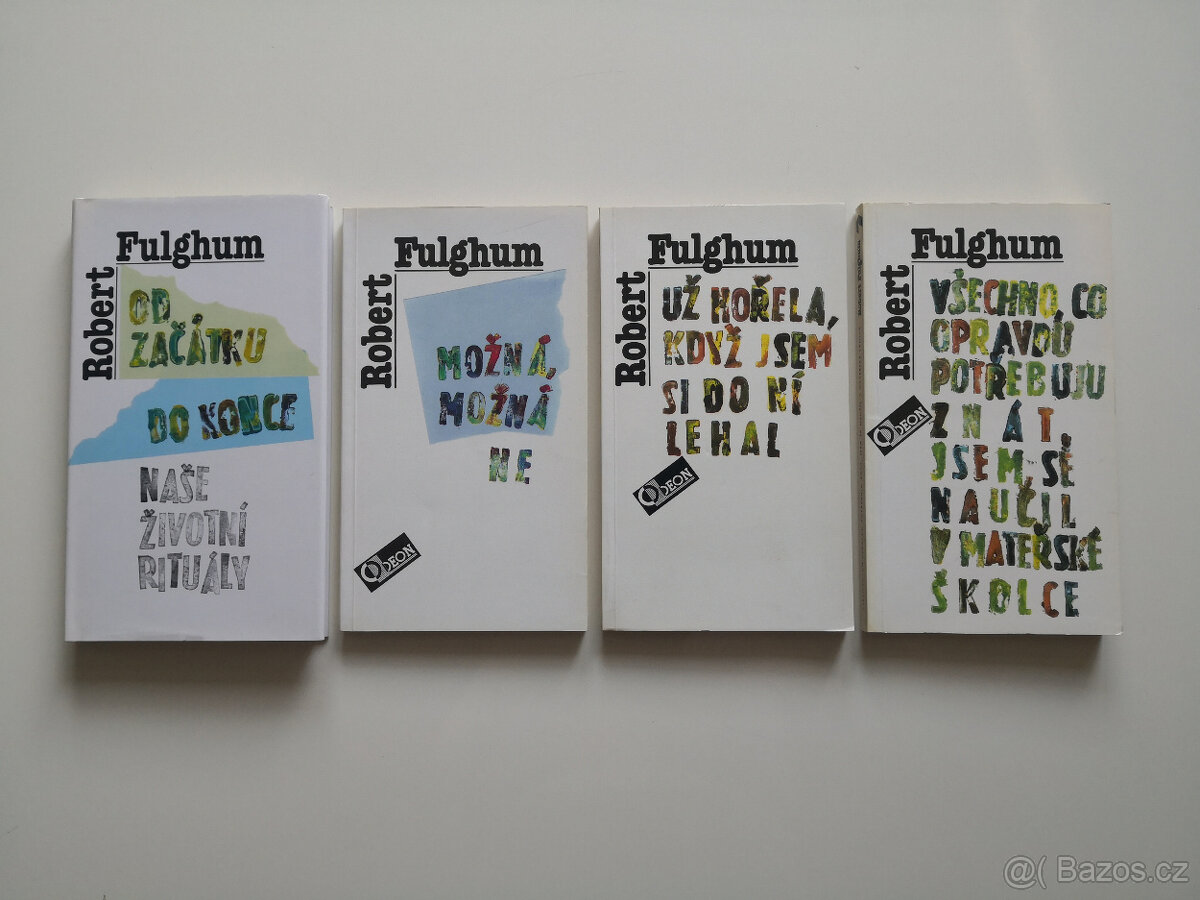 Robert
Fulghum
OD
ZAČÁTKU
DO KONCE
NAŠE
ŽIVOTNÍ
RITUÁLY
Robert
Fulghum
MOŽNÁ,
MOŽNÁ
NE
ODEON
Robert
Fulghum
UŽ HOŘELA,
KDYŽ JSEM
SI DO NÍ
LEHAL
ODEON
Robert
Fulghum
VŠECHNO, CO
OPRAVDU
POTŘEBUJU
ZNÁT,
JSEM SE
NAUČIL
V MATEŘSKÉ
ŠKOLCE
ODEON
@( Bazos.cz